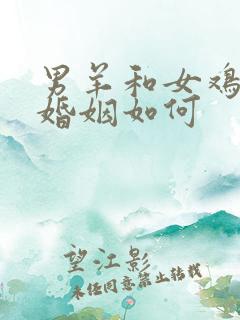 男羊和女鸡
婚姻如何
望江影
未经同意禁止转载